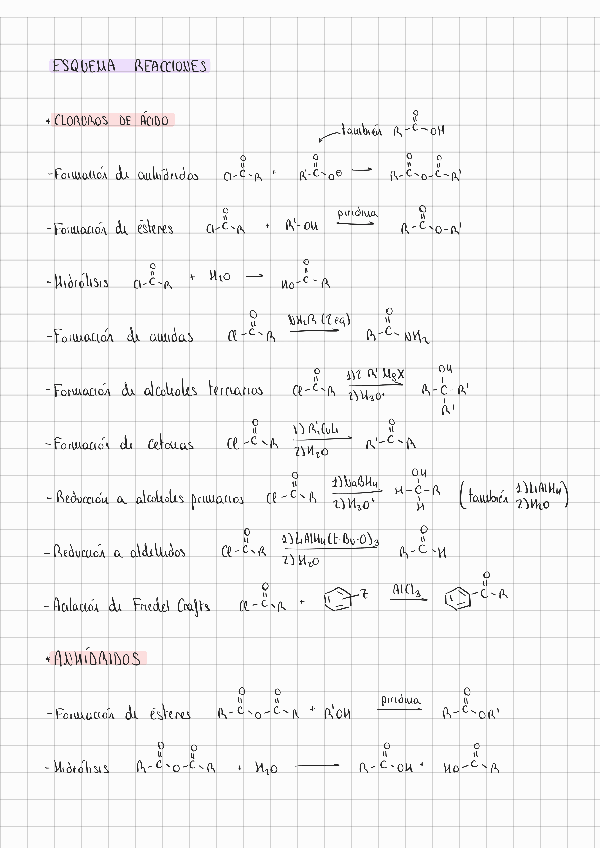 ESQUEMA REACCIONES
• CLORUROS DE ÁCIDO
también R-C(=O)-OH
- Formación de anhídridos Cl-C(=O)-R + R'-C(=O)-O⊖ → R-C(=O)-O-C(=O)-R'
- Formación de ésteres Cl-C(=O)-R + R'-OH piridina → R-C(=O)-O-R'
- Hidrólisis Cl-C(=O)-R + H2O → HO-C(=O)-R
- Formación de amidas Cl-C(=O)-R NH2R (2 eq) → R-C(=O)-NH2
- Formación de alcoholes terciarios Cl-C(=O)-R 1) 2 R'MgX 2) H3O+ → R-C(OH)(R')-R'
- Formación de cetonas Cl-C(=O)-R 1) R'2CuLi 2) H2O → R'-C(=O)-R
- Reducción a alcoholes primarios Cl-C(=O)-R 1) NaBH4 2) H3O+ → H-C(OH)(H)-R (también 1) LiAlH4 2) H2O)
- Reducción a aldehídos Cl-C(=O)-R 1) LiAlH4(t-Bu-O)3 2) H2O → R-C(=O)-H
- Acilación de Friedel Crafts Cl-C(=O)-R + Z AlCl3 → C(=O)-R
• ANHÍDRIDOS
- Formación de ésteres R-C(=O)-O-C(=O)-R + R'OH piridina → R-C(=O)-OR'
- Hidrólisis R-C(=O)-O-C(=O)-R + H2O → R-C(=O)-OH + HO-C(=O)-R